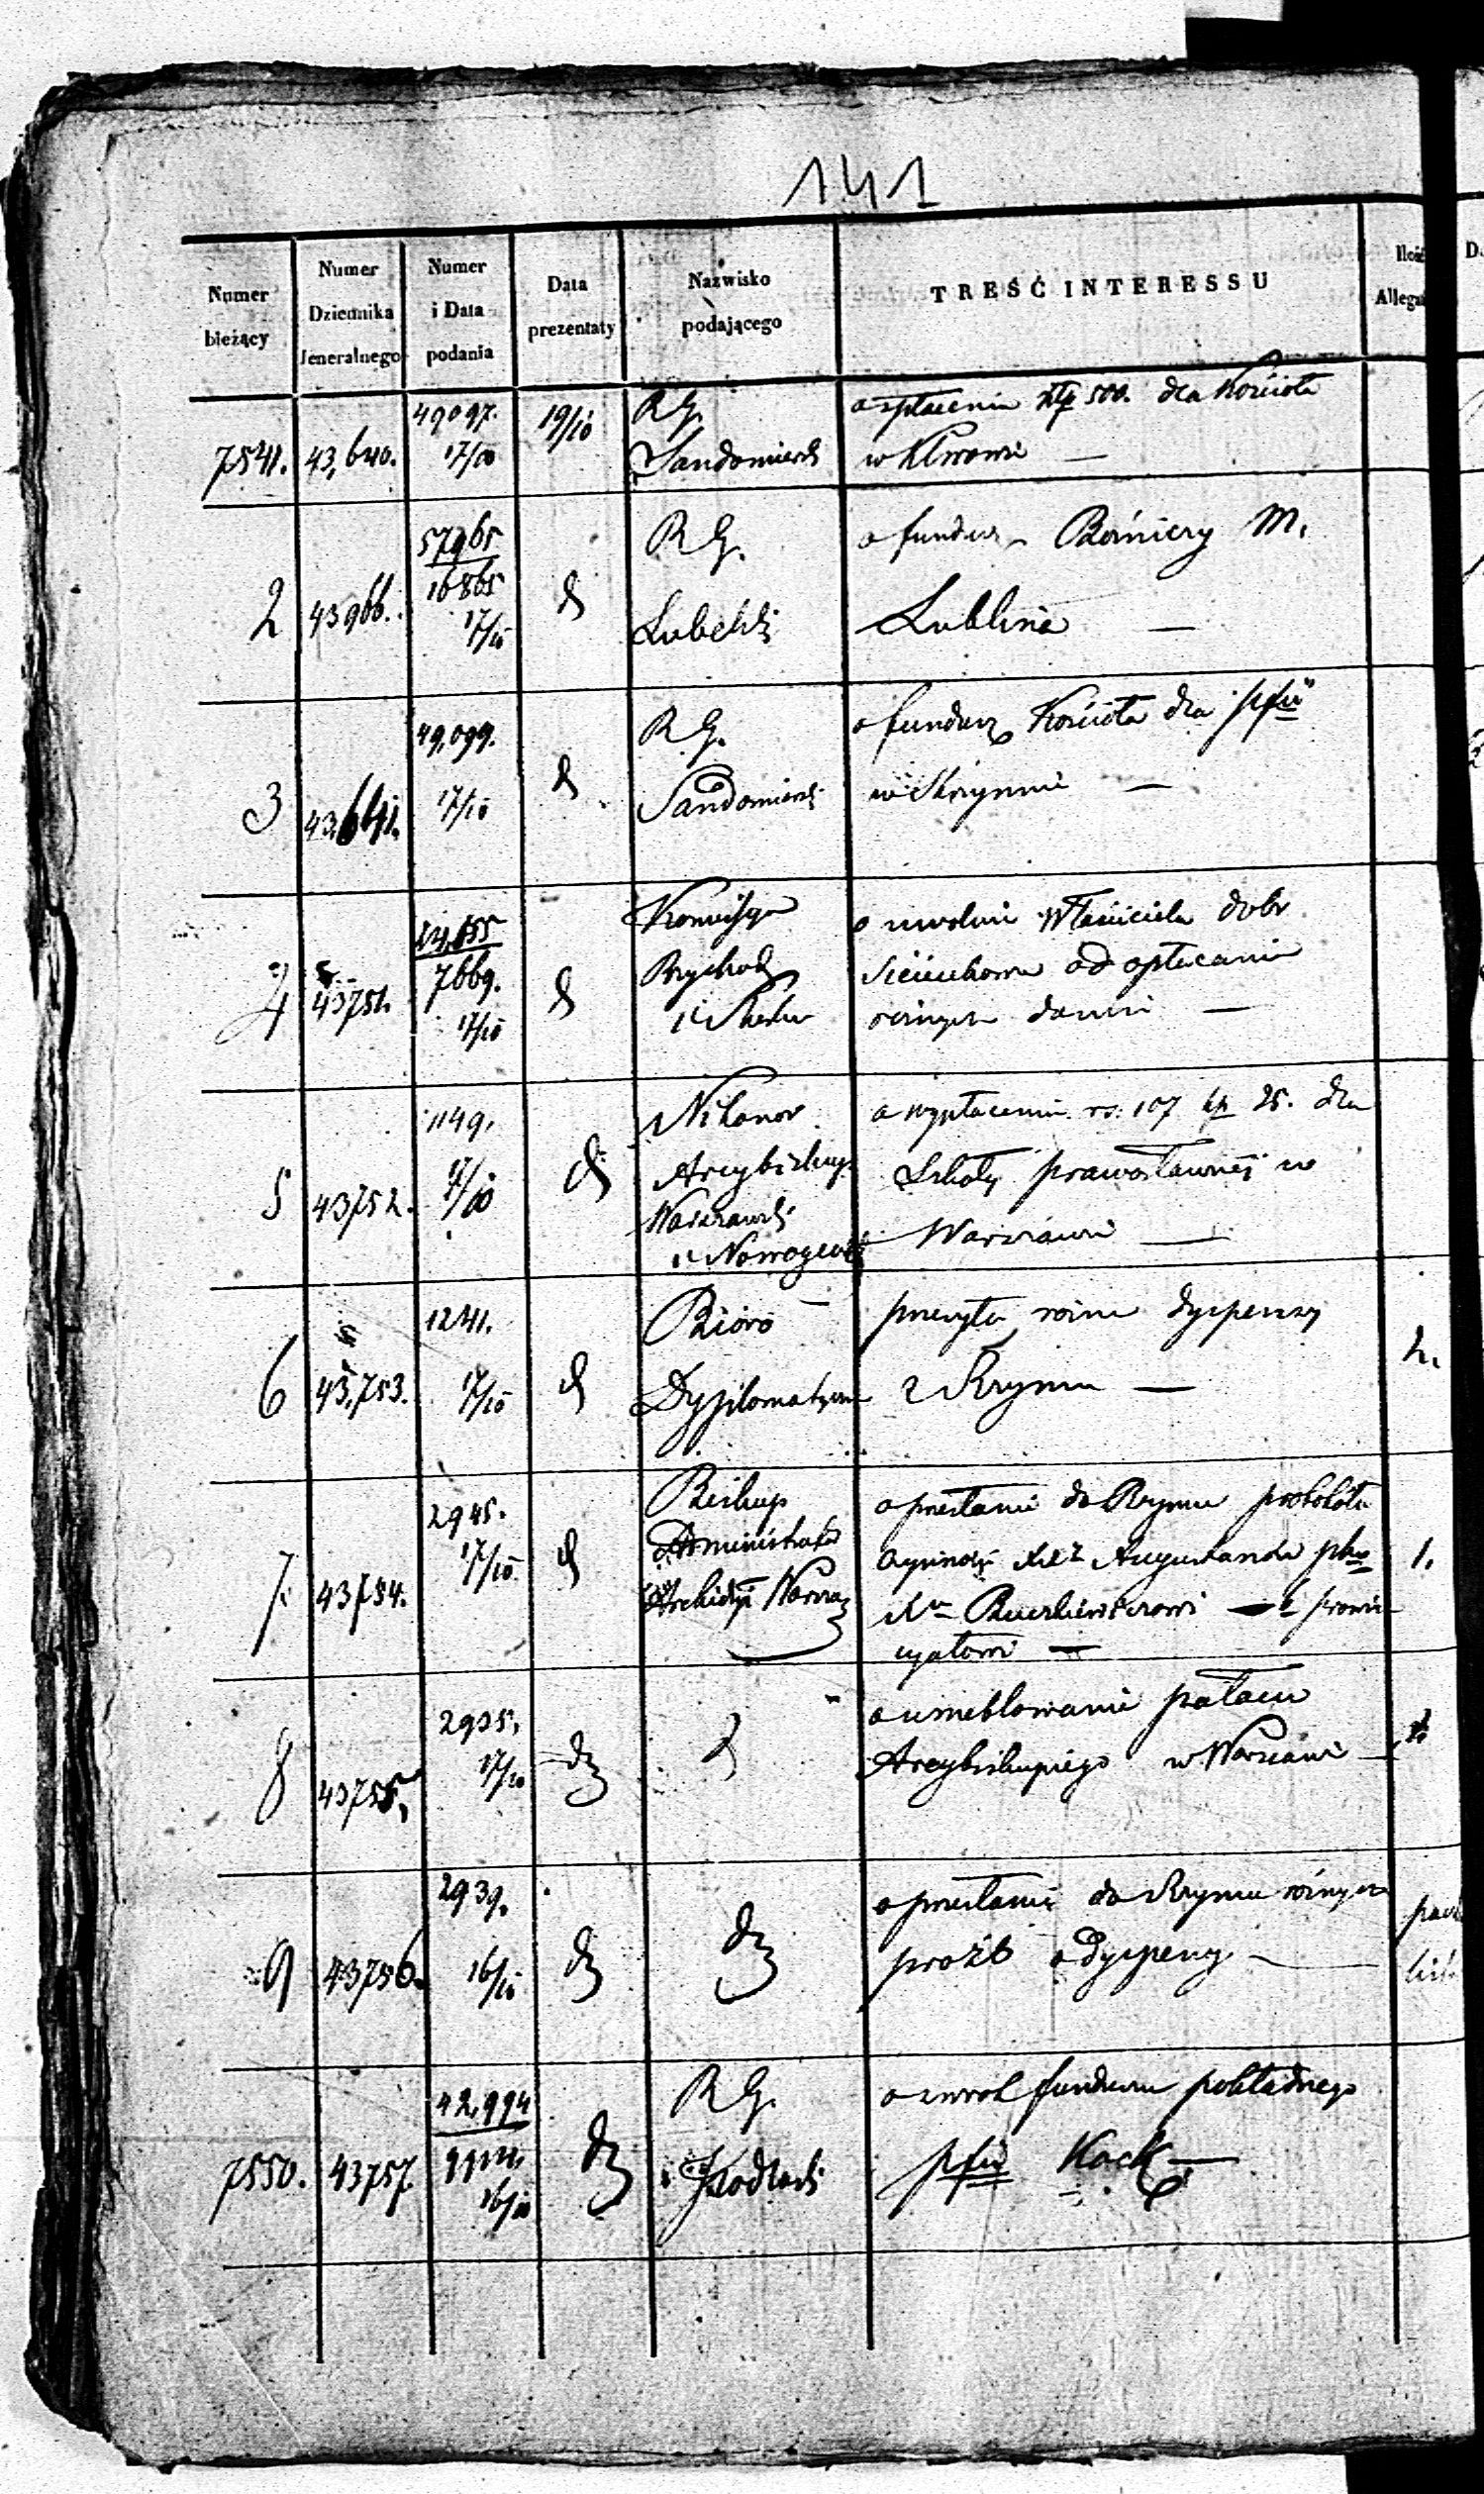 141
Numer bieżący
Numer Dziennika Jeneralnego
Numer i Data podania
Data prezentaty
Nazwisko podającego
TREŚĆ INTERESSU
Ilość
Allega
49097.
19/10
R G.
o zapłacenie złp 500. dla Kościoła
7541.
43,640.
17/10
Sandomierski
w Klwowie —
57965
R G.
o fundusz Bożnicy M.
16865
2
43966.
17/10
Lubelski
Lublina —
49,099.
R G.
o fundusz Kościoła dla pfii
3
43,641.
17/10
Sandomierski
w Skrzynnie —
Kommissya
o uwolnie Właściciela dobr
4
43751.
7669.
Przychod
Sieciechowa od opłacania
17/10
i Skarbu
danin —
1149.
Nikanor
o wypłacenie rs. 107 kp 25. dla
17/10
Arcybiskup
Szkoły prawosławnej w
5
43752.
Warszawski
Warszawie —
i Nowogeor
1241.
Bióro
przesyła różne dyspenzy
6
43,753.
17/10
Dyplomatyczne
z Rzymu —
2.
2945.
Biskup
o przesłanie do Rzymu protokółu
17/10
Administrator
Augustanów
1.
7.
43754.
Archidyi Warsza
cyałowi —
2935.
o umeblowanie pałacu
8
43755,
17/10
dz
Arcybiskupiego w Warszawie —
2939.
o przesłanie do Rzymu różnych
9
43756.
16/10
dz
dz
próźb o dyspensy —
42,994
R G.
o zwrot funduszu pokładnego
7550.
43757
16/10
dz
Podlaski
pfii Kock —